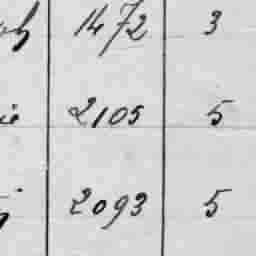 1472 3
2105 5
2093 5